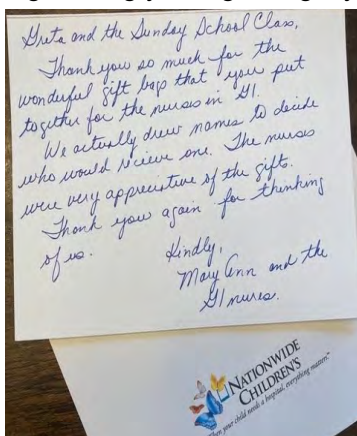 Greta and the Sunday School Class,
Thank you so much for the
wonderful gift bags that you put
together for the nurses in GI.
We actually drew names to decide
who would recieve one. The nurses
were very appreciative of the gifts.
Thank you again for thinking
of us.
Kindly,
Mary Ann and the
GI nurses.
NATIONWIDE
CHILDREN'S
When your child needs a hospital, everything matters.™